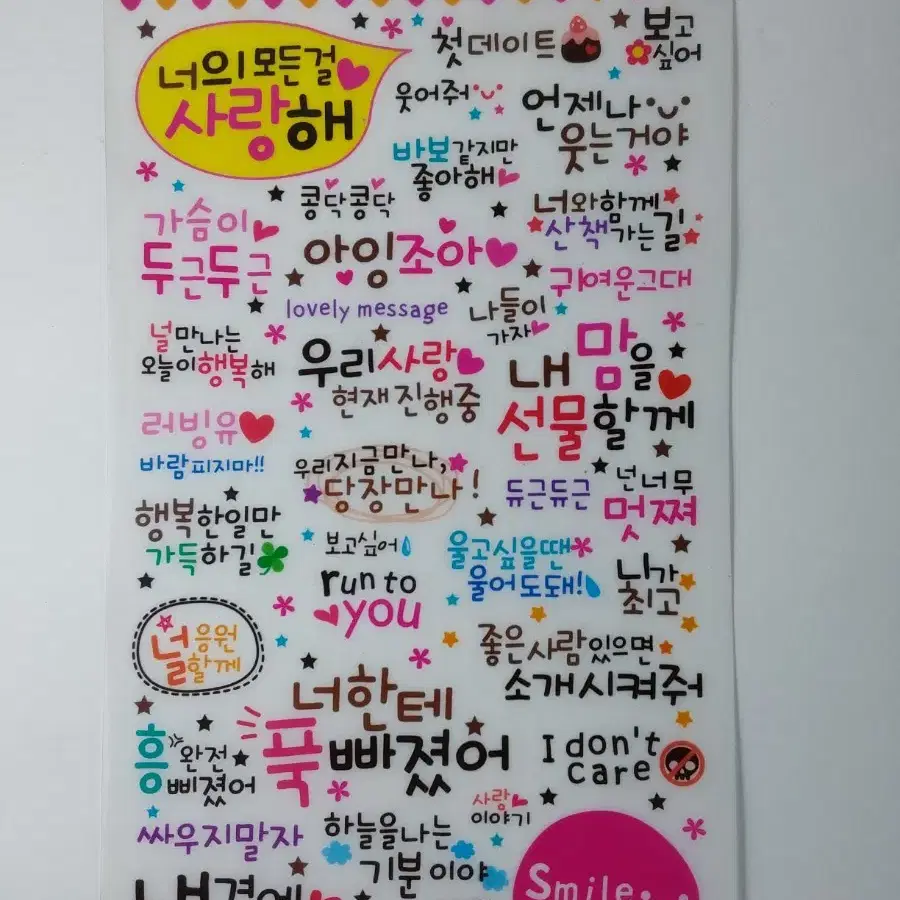 너의 모든걸
사랑해
첫데이트
보고
싶어
웃어줘
언제나
웃는거야
바보같지만
좋아해
콩닥콩닥
너와함께
산책가는길
가슴이
두근두근
아잉조아
귀여운그대
lovely message
나들이
가자
널만나는
오늘이행복해
우리사랑
현재진행중
내맘을
선물할께
러빙유
바람피지마!!
우리지금만나,
당장만나!
듀근듀근
넌너무
멋쪄
행복한일만
가득하길
보고싶어
울고싶을땐
울어도돼!
니가
최고
run to
you
널응원
할께
좋은사람있으면
소개시켜줘
너한테
푹빠졌어
흥완전
삐졌어
I don't
care
사랑
이야기
싸우지말자
하늘을나는
기분이야
Smile